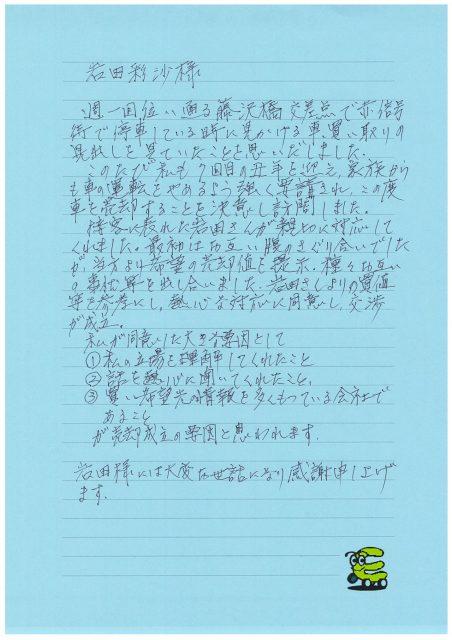 岩田彩沙様
週一回位い通る藤沢橋交差点で赤信号
街で停車している時に見かける車買い取りの
見出しを見ていたことを思いだしました。
このたび私も7回目の丑年を迎え、家族から
も車の運転をやめるよう強く要請され、この度
車を売却することを決意し訪問しました。
接客に表れた岩田さんが親切に対応して
くれました。最初はお互い腹のさぐり合いでした
が、当方より希望の売却値を提示、種々お互い
の事情等を出し合いました。岩田さんよりの買値
等を参考にし、熱心な対応に同意し、交渉
が成立。
私が同意した大きな要因として
①私の立場を理解してくれたこと
②話を熱心に聞いてくれたこと、
③買い希望先の情報を多くもっている会社で
あること
が売却成立の要因と思われます。
岩田様には大変お世話になり感謝申し上げ
ます。